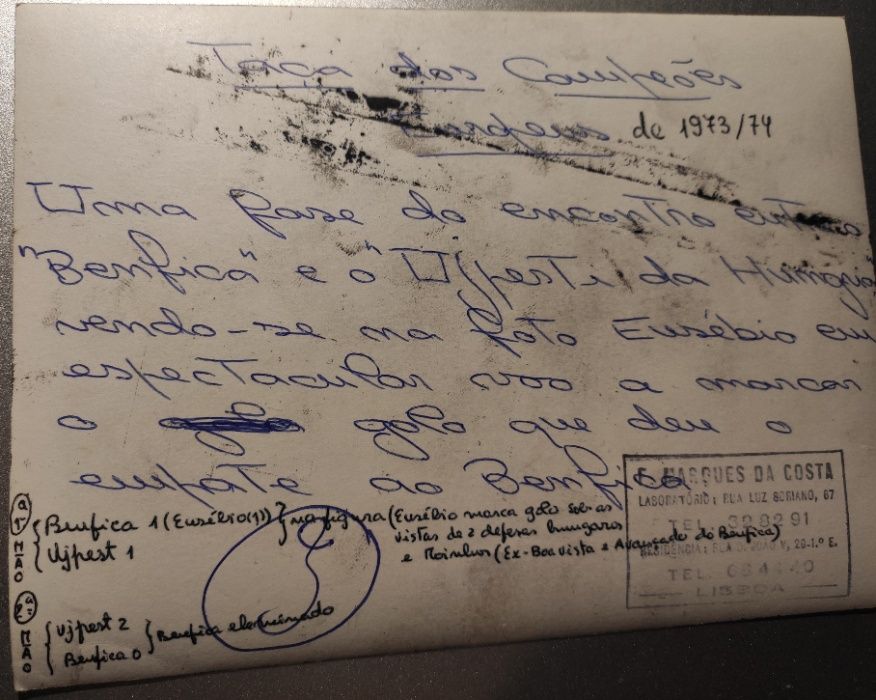 Taça dos Campeões
Europeus de 1973/74
Uma fase do encontro entre o
"Benfica" e o "Ujpesti da Hungria
vendo-se na foto Eusébio em
espectacular voo a marcar
o golo que deu o
empate ao Benfica
1ª MÃO
Benfica 1 (Eusébio(1)) } na figura (Eusébio marca golo sob as
Ujpest 1
vistas de 2 defesas hungaros
e Moinhos (Ex-Boavista e Avançado do Benfica)
2ª MÃO
Ujpest 2
Benfica 0 } Benfica eleminado
3
E. MARQUES DA COSTA
LABORATÓRIO: RUA LUZ SORIANO, 67
TEL. 32 82 91
RESIDÊNCIA: RUA D. JOÃO V, 29-1.º E.
TEL.
LISBOA